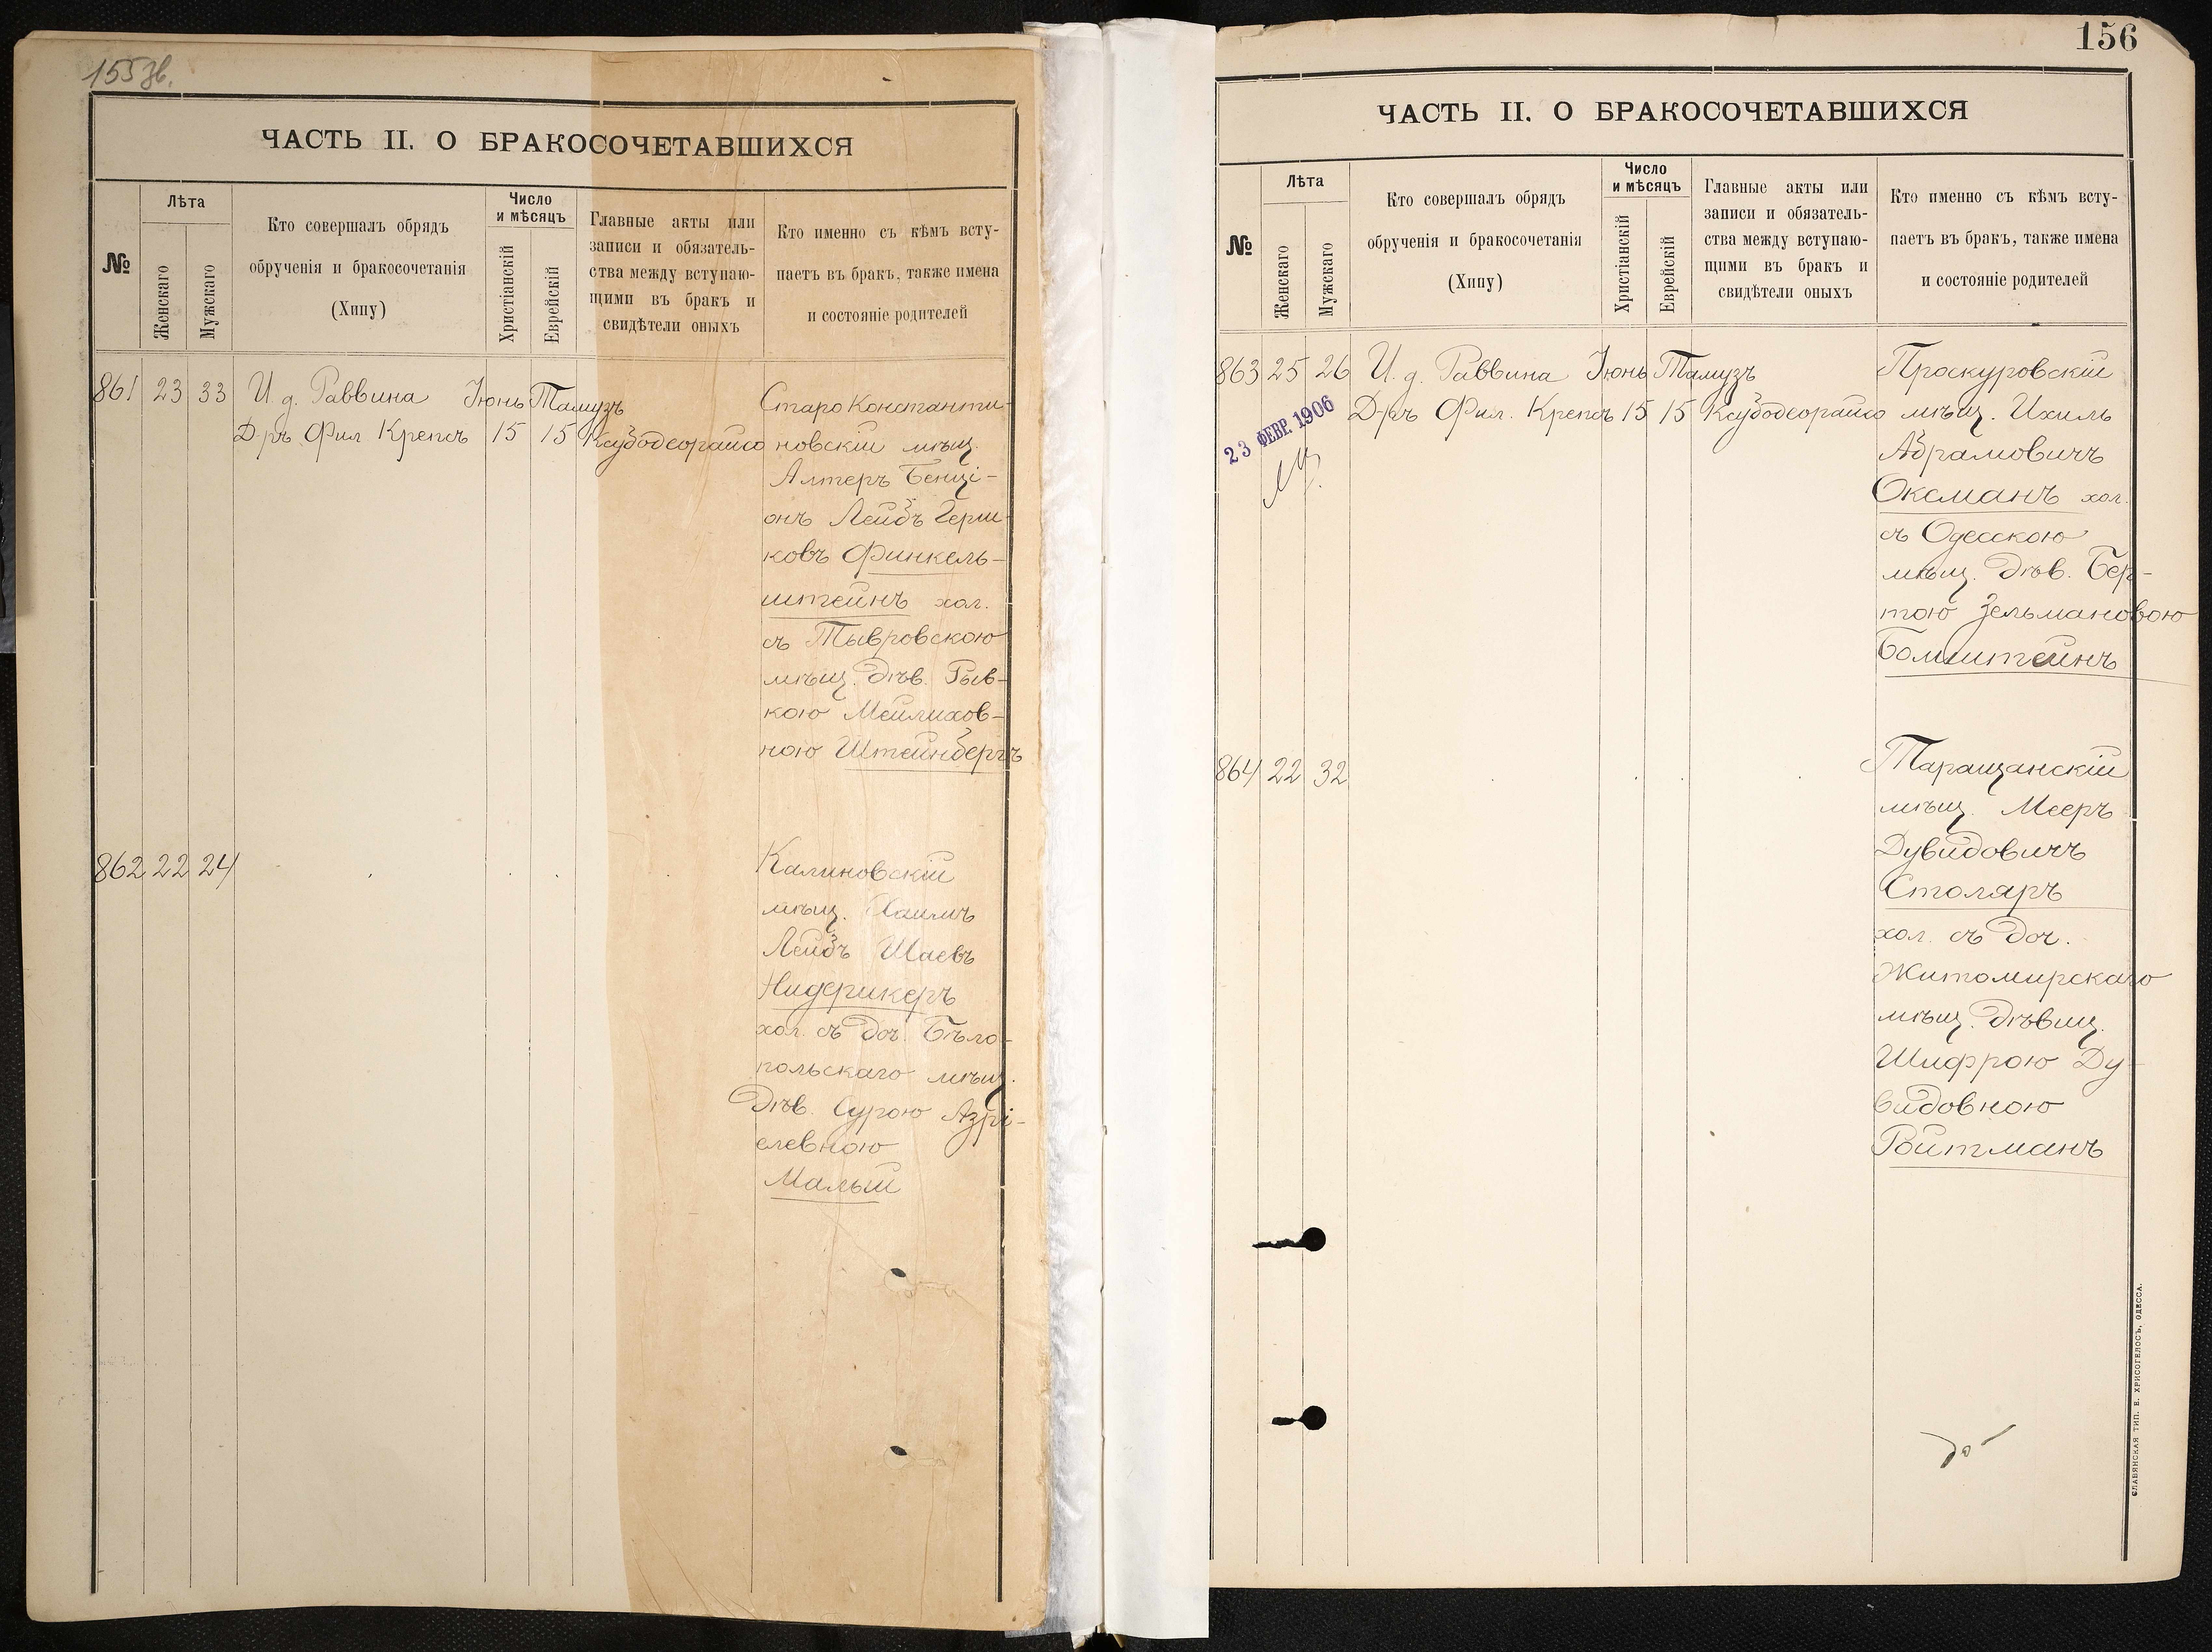 155 зв.
ЧАСТЬ II. О БРАКОСОЧЕТАВШИХСЯ
№
Лѣта
Женскаго
Мужскаго
Кто совершалъ обрядъ
обрученія и бракосочетанія
(Хипу)
Число
и мѣсяцъ
Христіанскій
Еврейскій
Главные акты или
записи и обязатель-
ства между вступаю-
щими въ бракъ и
свидѣтели оныхъ
Кто именно съ кѣмъ всту-
паетъ въ бракъ, также имена
и состояніе родителей
861 23 33 И. д. Раввина Іюнь Тамузъ
Д-ръ Фил Крепсъ 15 15
Старо Константи-
новскій мѣщ.
Алтеръ Бенці-
онъ Лейбъ Герш-
ковъ Финкель-
штейнъ хол.
съ Тывровскою
мѣщ. Дѣв. Рыв-
кою Мейлихов-
ною Штейнбергъ
862 22 24
Калиновскій
мѣщ. Хаимъ
Лейбъ Шаевъ
Нидерикеръ
хол. съ доч. Бѣло-
польскаго мѣщ.
Дѣв. Сурою Азрі-
елевною
Малый
156
ЧАСТЬ II. О БРАКОСОЧЕТАВШИХСЯ
№
Лѣта
Женскаго
Мужскаго
Кто совершалъ обрядъ
обрученія и бракосочетанія
(Хипу)
Число
и мѣсяцъ
Христіанскій
Еврейскій
Главные акты или
записи и обязатель-
ства между вступаю-
щими въ бракъ и
свидѣтели оныхъ
Кто именно съ кѣмъ всту-
паетъ въ бракъ, также имена
и состояніе родителей
863 25 26 И. д. Раввина Іюнь Тамузъ
Д-ръ Фил. Крепсъ 15 15
23 ФЕВР. 1906
Проскуровскій
мѣщ. Ихиль
Абрамовичъ
Оксманъ хол.
съ Одесскою
мѣщ. Дѣв. Бер-
тою Зельмановою
Бомштейнъ
864 22 32
Таращанскій
мѣщ. Мееръ
Дувидовичъ
Столяръ
хол. съ доч.
Житомирскаго
мѣщ. Дѣвиц.
Шифрою Ду-
видовною
Ройтманъ
СЛАВЯНСКАЯ ТИП. Е. ХРИСОГЕЛОСЪ, ОДЕССА.